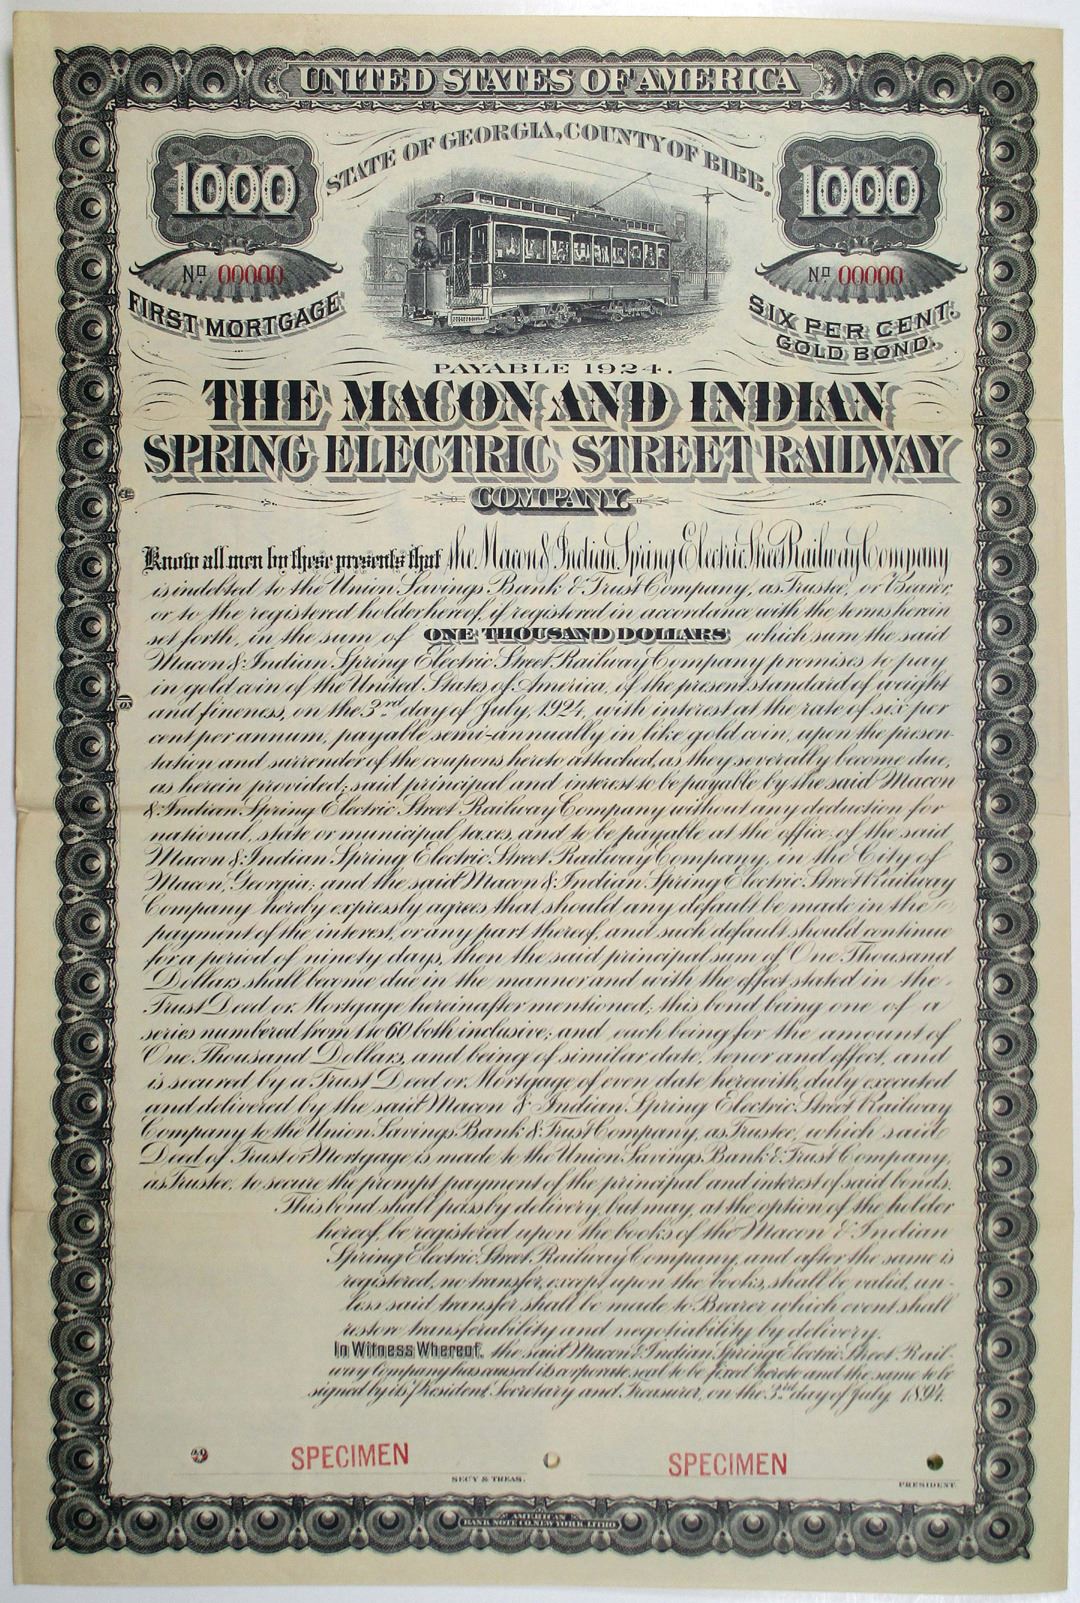 UNITED STATES OF AMERICA
STATE OF GEORGIA, COUNTY OF BIBB.
1000
1000
No 00000
No 00000
FIRST MORTGAGE
SIX PER CENT.
GOLD BOND.
PAYABLE 1924.
THE MACON AND INDIAN
SPRING ELECTRIC STREET RAILWAY
COMPANY.
Know all men by these presents that the Macon & Indian Spring Electric Street Railway Company
is indebted to the Union Savings Bank & Trust Company, as Trustee, or Bearer,
or to the registered holder hereof, if registered in accordance with the terms herein
set forth, in the sum of ONE THOUSAND DOLLARS which sum the said
Macon & Indian Spring Electric Street Railway Company promises to pay
in gold coin of the United States of America, of the present standard of weight
and fineness, on the 3rd day of July, 1924, with interest at the rate of six per
cent per annum, payable semi-annually in like gold coin, upon the presen-
tation and surrender of the coupons hereto attached, as they severally become due,
as herein provided; said principal and interest to be payable by the said Macon
& Indian Spring Electric Street Railway Company without any deduction for
national, state or municipal taxes, and to be payable at the office of the said
Macon & Indian Spring Electric Street Railway Company, in the City of
Macon, Georgia; and the said Macon & Indian Spring Electric Street Railway
Company hereby expressly agrees that should any default be made in the
payment of the interest, or any part thereof, and such default should continue
for a period of ninety days, then the said principal sum of One Thousand
Dollars shall become due in the manner and with the effect stated in the
Trust Deed or Mortgage hereinafter mentioned; this bond being one of a
series numbered from 1 to 60 both inclusive; and each being for the amount of
One Thousand Dollars, and being of similar date, tenor and effect, and
is secured by a Trust Deed or Mortgage of even date herewith, duly executed
and delivered by the said Macon & Indian Spring Electric Street Railway
Company to the Union Savings Bank & Trust Company, as Trustee, which said
Deed of Trust or Mortgage is made to the Union Savings Bank & Trust Company,
as Trustee, to secure the prompt payment of the principal and interest of said bonds.
This bond shall pass by delivery, but may, at the option of the holder
hereof, be registered upon the books of the Macon & Indian
Spring Electric Street Railway Company, and after the same is
registered, no transfer, except upon the books, shall be valid, un-
less said transfer shall be made to Bearer which event shall
restore transferability and negotiability by delivery.
In Witness Whereof, the said Macon & Indian Spring Electric Street Rail-
way Company has caused its corporate seal to be fixed hereto and the same to be
signed by its President, Secretary and Treasurer, on the 3rd day of July 1894.
SPECIMEN
SPECIMEN
SEC'Y & TREAS.
PRESIDENT
AMERICAN
BANK NOTE CO. NEW YORK, LITHO